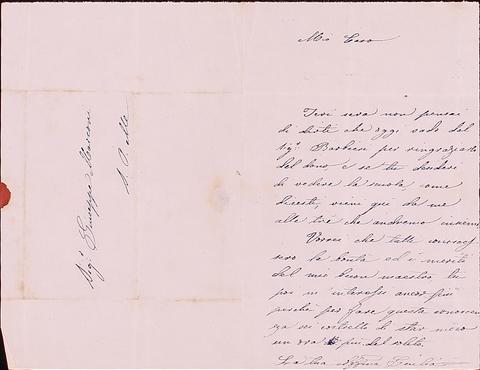 Mio Caro
Ieri sera non pensai
di dirti che oggi vado dal
Sig.r Barbieri per ringraziarlo
del dono e se tu desideri
di vedere la scuola come
dicesti, vieni qui da me
alle tre che andremo insieme
Vorrei che tutti conoscessero
la bontà ed i meriti
del mio buon maestro tu
poi m'interessi ancor più
perché per fare questa conoscen
za sei costretto di star meco
un'ora di più del solito.
La tua
Sig.r Giuseppe
S. P. Mle